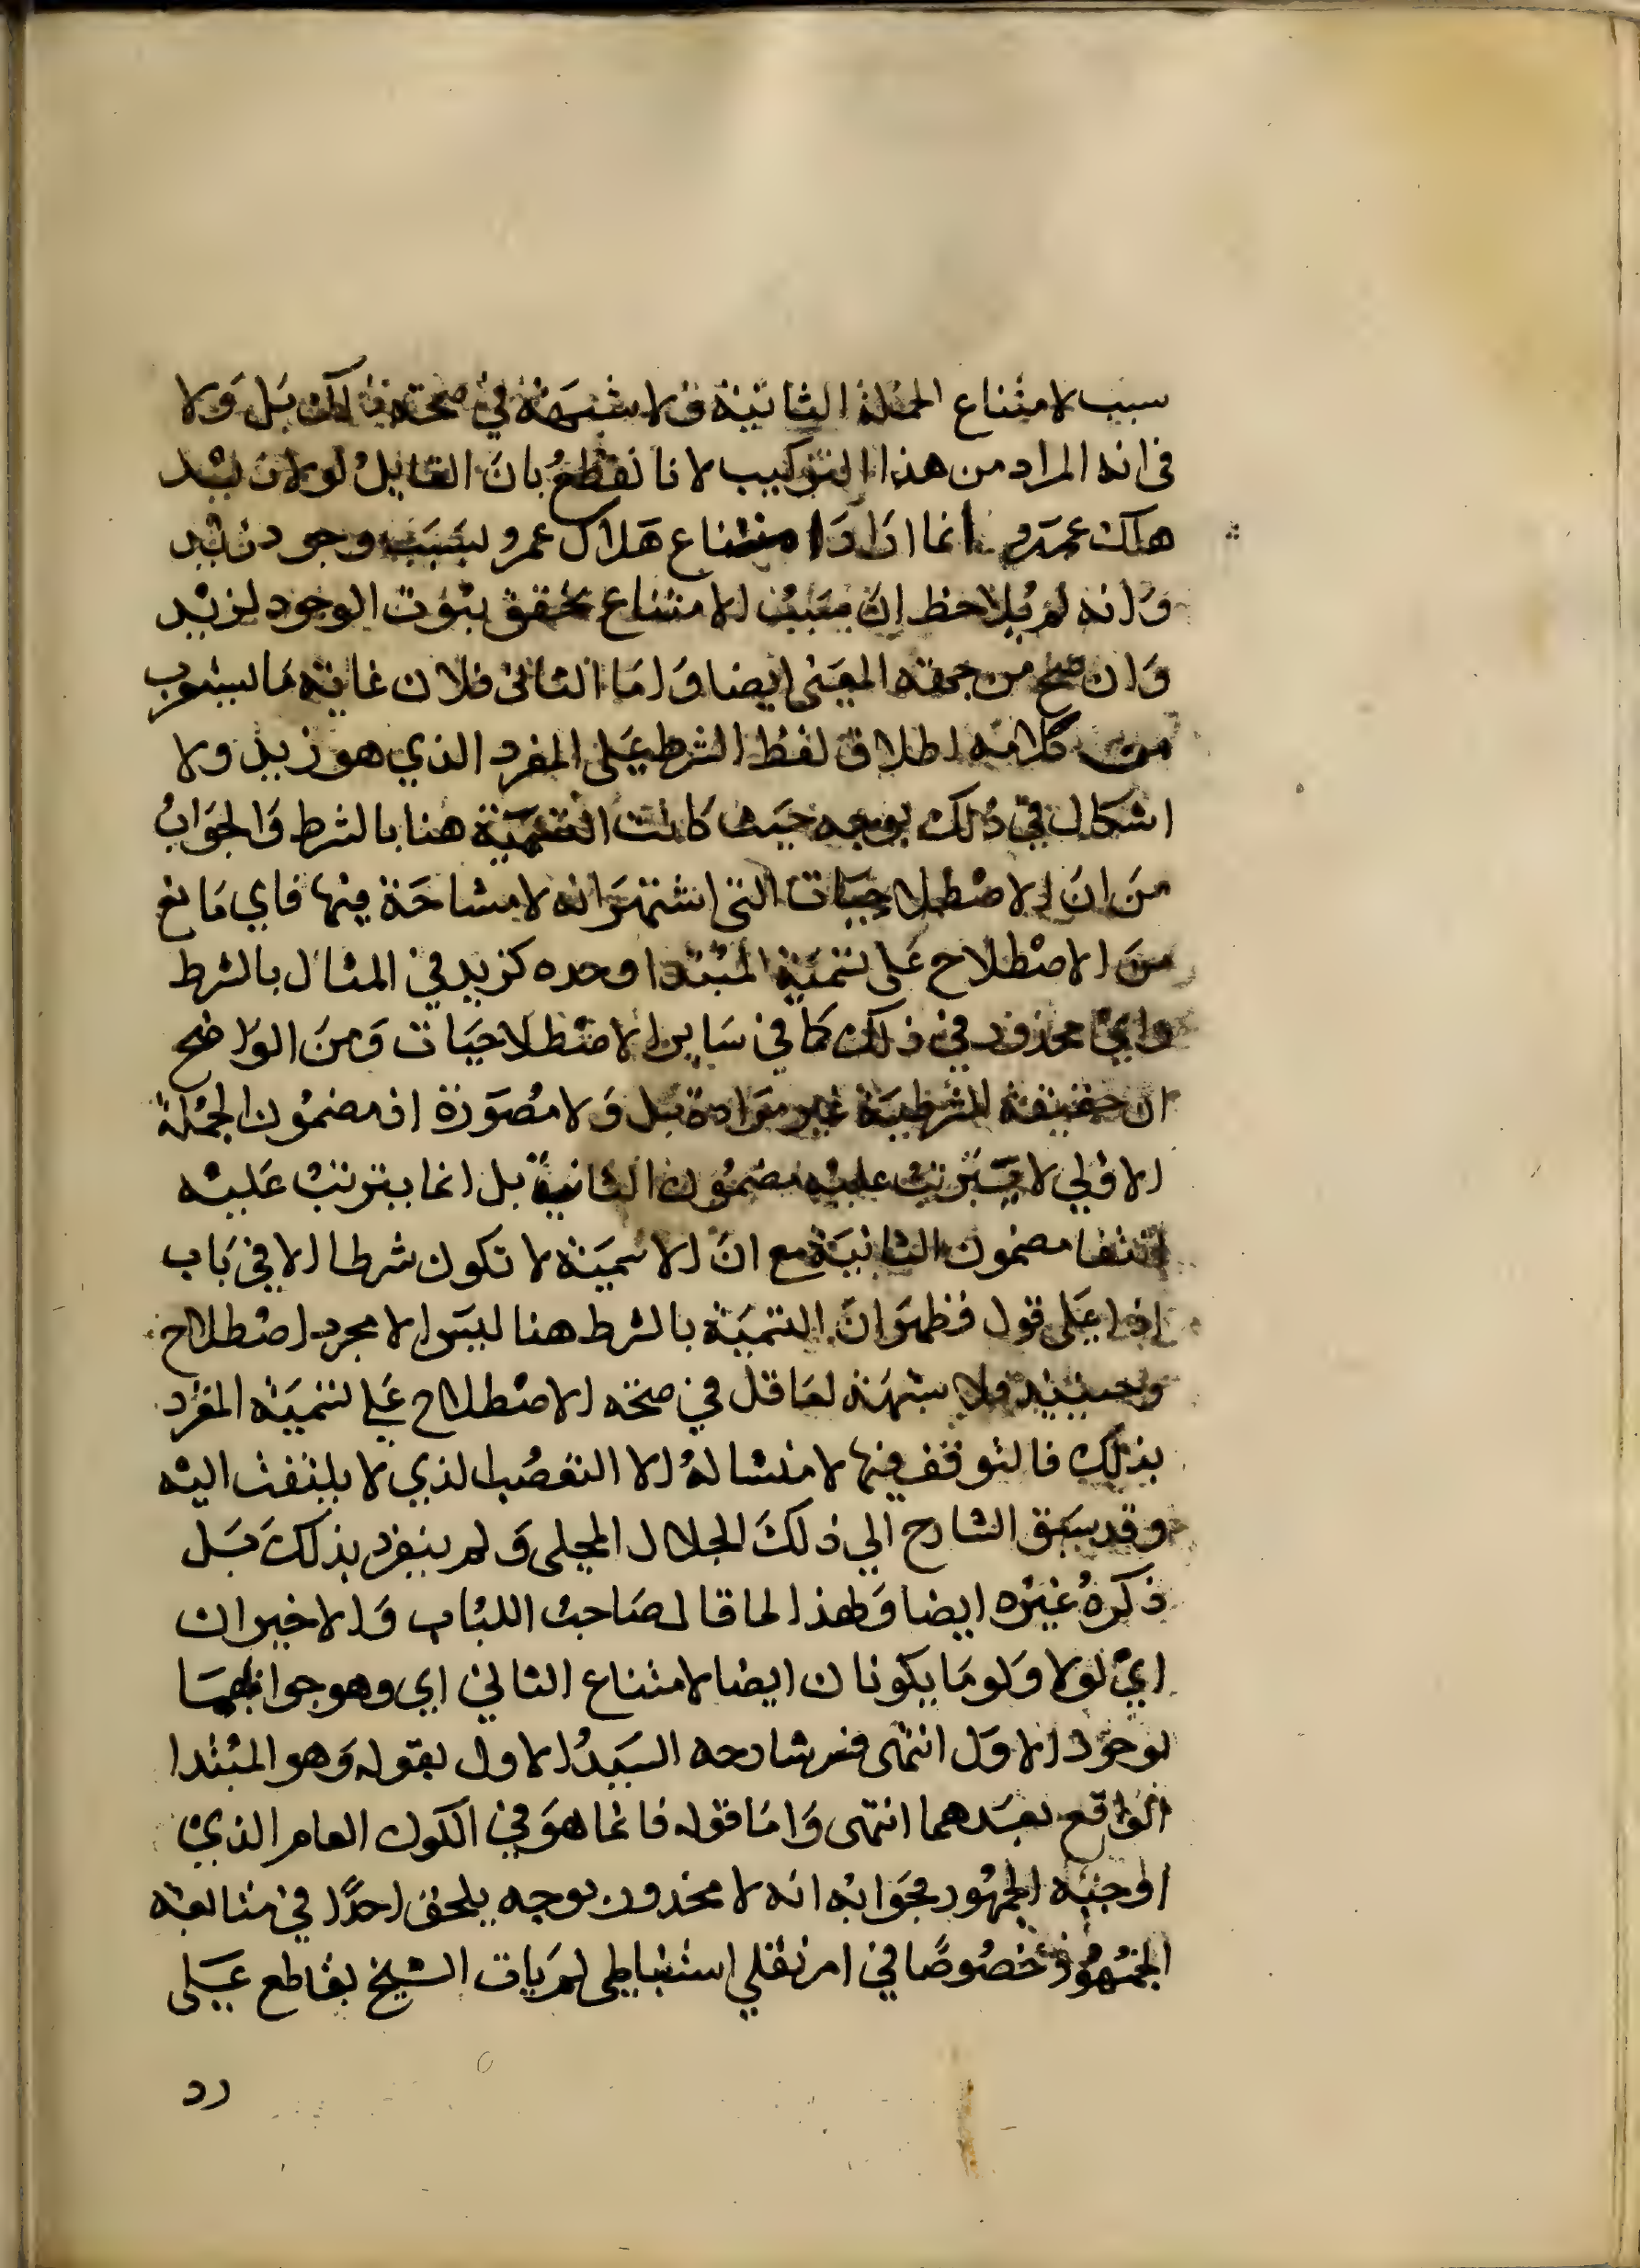 سبب لامتناع الجملة الثانية ولا شبهة في صحة ذلك بل ولا
في انه المراد من هذا التركيب لانا نقطع بان القايل لولا زيد
هلك عمرو انما اراد امتناع هلاك عمرو بسبب وجود زيد
وانه لم يلاحظ ان سبب الامتناع تحقق ثبوت الوجود لزيد
وان صح من جهة المعنى ايضا واما الثاني فلان غاية ما
من كلامه اطلاق لفظ الشرط على المفرد الذي هو زيد ولا
اشكال في ذلك بوجه حيث كانت التسمية هنا بالشرط والجواب
من ان الاصطلاحيات التي اشتهر انه لا مشاحة فيها فاي مانع
من الاصطلاح على تسمية المبتدا وحده كزيد في المثال بالشرط
واي محذور في ذلك كما في ساير الاصطلاحيات ومن الواضح
ان حقيقة الشرطية غير مرادة بل ولا مصورة اذ مضمون الجملة
الاولي لا يترتب عليه مضمون الثانية بل انما يترتب عليه
انتفا مضمون الثانية مع ان الاسمية لا تكون شرطا الا في باب
اذا على قول فظهر ان التسمية بالشرط هنا ليس الا مجرد اصطلاح
وحينيذ فلا شبهة لعاقل في صحة الاصطلاح علي تسمية المفرد
بذلك فالتوقف فيها لا منشا له الا التعصب الذي لا يلتفت اليه
وقد سبق الشارح الي ذلك الجلال المحلى ولم ينفرد بذلك بل
ذكره غيره ايضا ولهذا لما قال صاحب اللباب والاخيران
اي لولا ولوما يكونان ايضا لامتناع الثاني اي وهو جوابهما
لوجود الاول انتهى فسر شارحه السيد الاول بقوله وهو المبتدا
الواقع بعدهما انتهى واما قوله فانما هو في الكون العام الذي
اوجبه الجمهور فجوابه انه لا محذور بوجه يلحق احدا في متابعة
الجمهور خصوصا في امر نقلي استنباطى لم يات الشيخ بقاطع على
رد